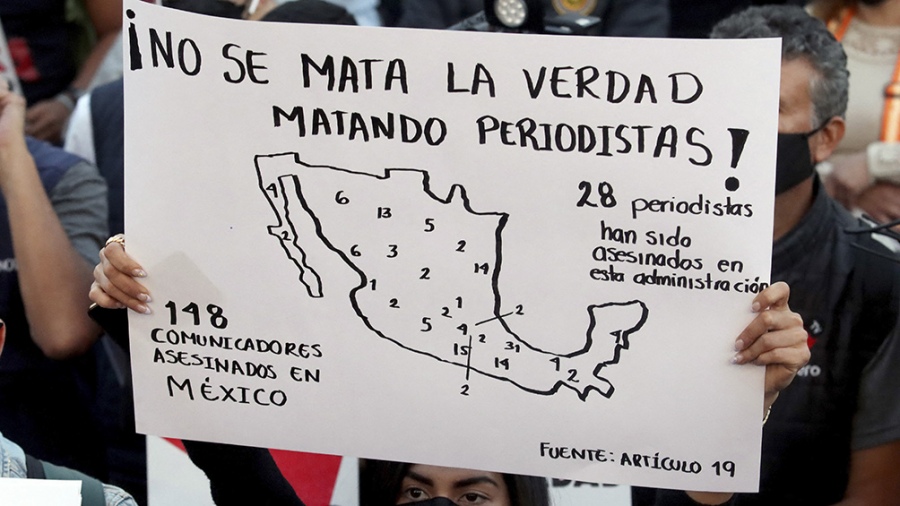 ¡NO SE MATA LA VERDAD
MATANDO PERIODISTAS!
28 periodistas
han sido
asesinados en
esta administración
4
6
13
5
2
6
3
2
14
2
1
2
1
2
2
5
4
2
31
15
14
4
2
1
2
148
COMUNICADORES
ASESINADOS EN
MÉXICO
FUENTE: ARTÍCULO 19